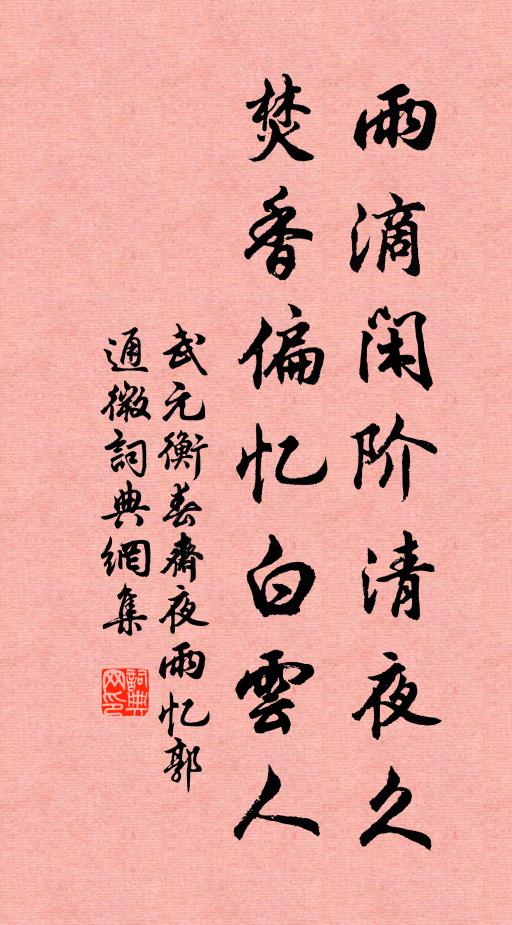 雨滴闲阶清夜久
焚香偏忆白雲人
武元衡春齋夜雨忆郭
通微詞典網集
詞典网印